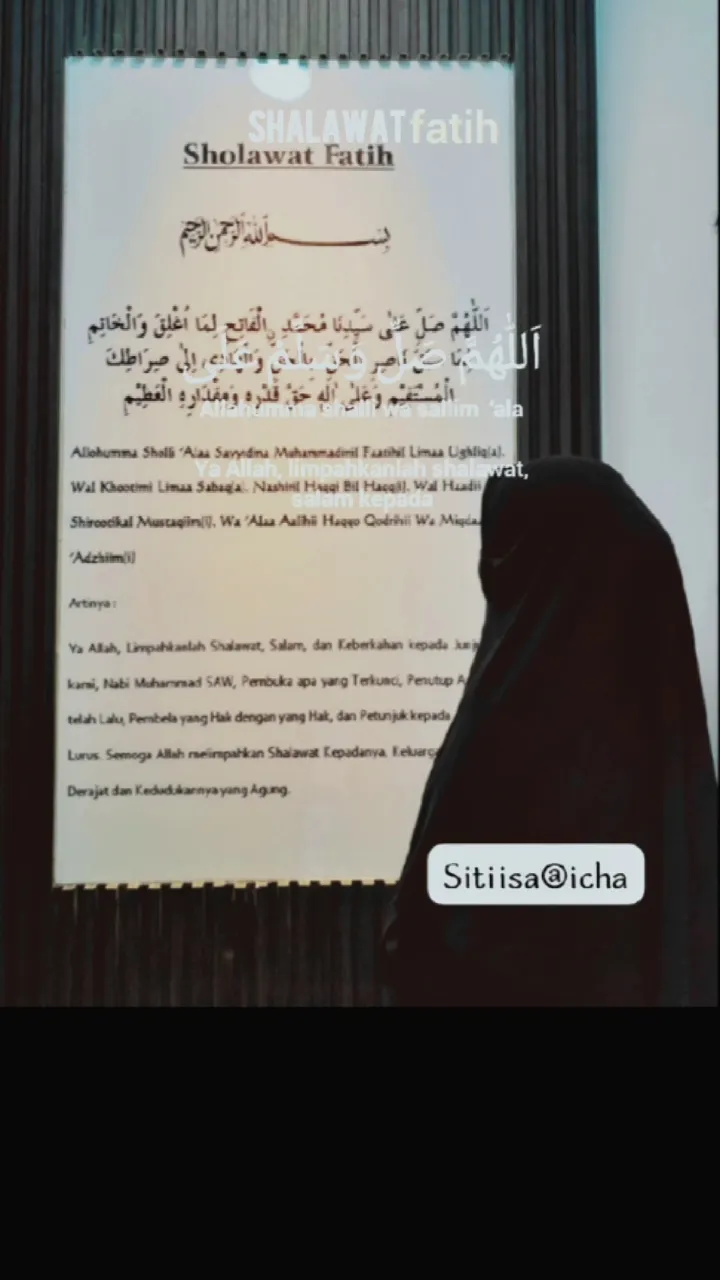 SHALAWAT fatih
Sholawat Fatih
بِسْمِ اللهِ الرَّحْمٰنِ الرَّحِيْمِ
اَللّٰهُمَّ صَلِّ عَلٰى سَيِّدِنَا مُحَمَّدٍ الْفَاتِحِ لِمَا اُغْلِقَ وَالْخَاتِمِ
نَاصِرِ الْحَقِّ بِالْحَقِّ وَالْهَادِى اِلٰى صِرَاطِكَ
الْمُسْتَقِيْمِ وَعَلٰى اٰلِهِ حَقَّ قَدْرِهِ وَمِقْدَارِهِ الْعَظِيْمِ
اَللّٰهُمَّ صَلِّ وَسَلِّمْ عَلٰى
Allahumma shalli wa sallim 'ala
Ya Allah, limpahkanlah shalawat,
salam kepada
Allohumma Sholli 'Alaa Sayyidina Muhammadinil Faatihil Limaa Ughliq(a).
Wal Khootimi Limaa Sabaq(a). Nashiril Haqqi Bil Haqq(i). Wal Haadii
Shirootikal Mustaqiim(i). Wa 'Alaa Aalihii Haqqo Qodrihii Wa
'Adzhiim(i)
Artinya :
Ya Allah, Limpahkanlah Shalawat, Salam, dan Keberkahan kepada
kami, Nabi Muhammad SAW, Pembuka apa yang Terkunci, Penutup
telah Lalu, Pembela yang Hak dengan yang Hak, dan Petunjuk kepada
Lurus. Semoga Allah melimpahkan Shalawat Kepadanya. Keluarga
Derajat dan Kedudukannya yang Agung.
Sitiisa@icha